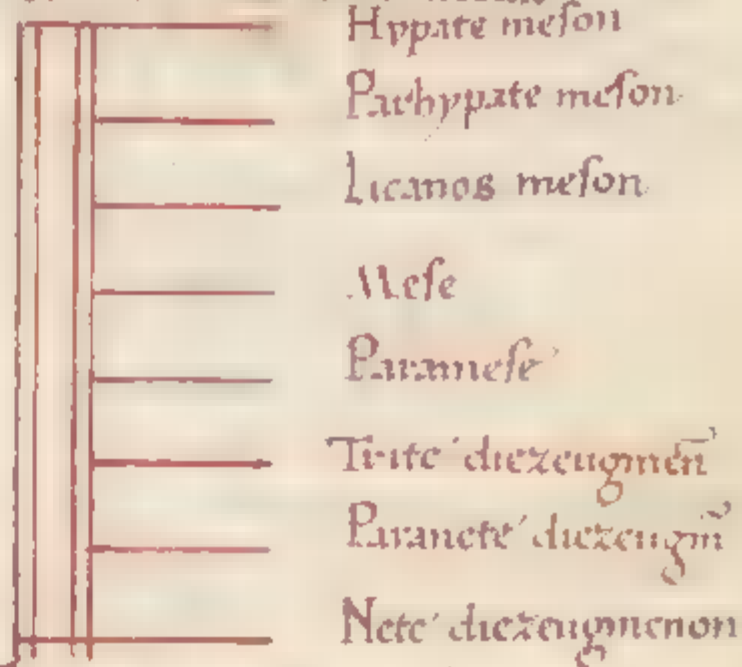 Hypate meson
Parhypate meson
Licanos meson
Mese
Paramese
Trite diezeugmen̄
Paranete diezeugm̄
Nete diezeugmenon